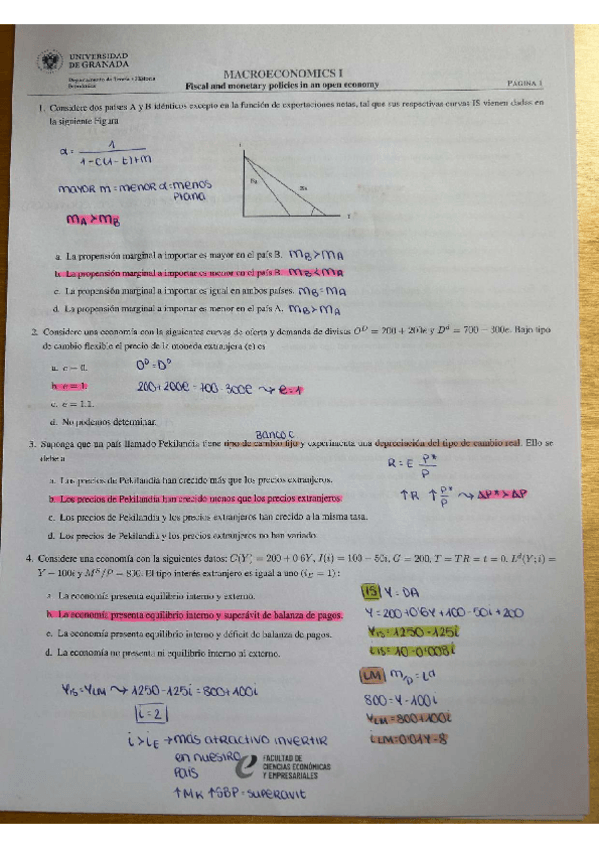 UNIVERSIDAD
DE GRANADA
Departamento de Teoría e Historia
Económica
MACROECONOMICS I
Fiscal and monetary policies in an open economy
PÁGINA 1
1. Considere dos países A y B idénticos excepto en la función de exportaciones netas, tal que sus respectivas curvas IS vienen dadas en
la siguiente Figura
α = 1 / 1-c(1-t)+m
mayor m = menor α = menos
plana
mA > mB
a. La propensión marginal a importar es mayor en el país B. mB > mA
b. La propensión marginal a importar es menor en el país B. mB < mA
c. La propensión marginal a importar es igual en ambos países. mB = mA
d. La propensión marginal a importar es menor en el país A. mB > mA
2. Considere una economía con la siguientes curvas de oferta y demanda de divisas O^D = 200 + 200e y D^d = 700 − 300e. Bajo tipo
de cambio flexible el precio de la moneda extranjera (e) es
a. e = 0.
O^D = D^D
b. e = 1.
200+200e = 700-300e ⤳ e=1
c. e = 1.1.
d. No podemos determinar.
Banco C
3. Suponga que un país llamado Pekilandia tiene tipo de cambio fijo y experimenta una depreciación del tipo de cambio real. Ello se
debe a
R = E P*/P
a. Los precios de Pekilandia han crecido más que los precios extranjeros.
b. Los precios de Pekilandia han crecido menos que los precios extranjeros.
↑R ↑P*/P ⤳ ΔP* > ΔP
c. Los precios de Pekilandia y los precios extranjeros han crecido a la misma tasa.
d. Los precios de Pekilandia y los precios extranjeros no han variado.
4. Considere una economía con la siguientes datos: C(Y) = 200 + 0.6Y, I(i) = 100 − 50i, G = 200, T = TR = t = 0, L^d(Y; i) =
Y − 100i y M^S/P = 800. El tipo interés extranjero es igual a uno (iE = 1) :
a. La economía presenta equilibrio interno y externo.
IS Y = DA
b. La economía presenta equilibrio interno y superávit de balanza de pagos.
Y = 200+0'6Y+100-50i+200
c. La economía presenta equilibrio interno y déficit de balanza de pagos.
YIS = 1250-125i
d. La economía no presenta ni equilibrio interno ni externo.
iIS = 10-0'008i
LM M/P = Ld
YIS = YLM ⤳ 1250-125i = 800+100i
800 = Y-100i
i = 2
YLM = 800+100i
iLM = 0'01Y-8
i > iE → más atractivo invertir
en nuestro
país
↑MK ↑SBP = superavit
FACULTAD DE
CIENCIAS ECONÓMICAS
Y EMPRESARIALES